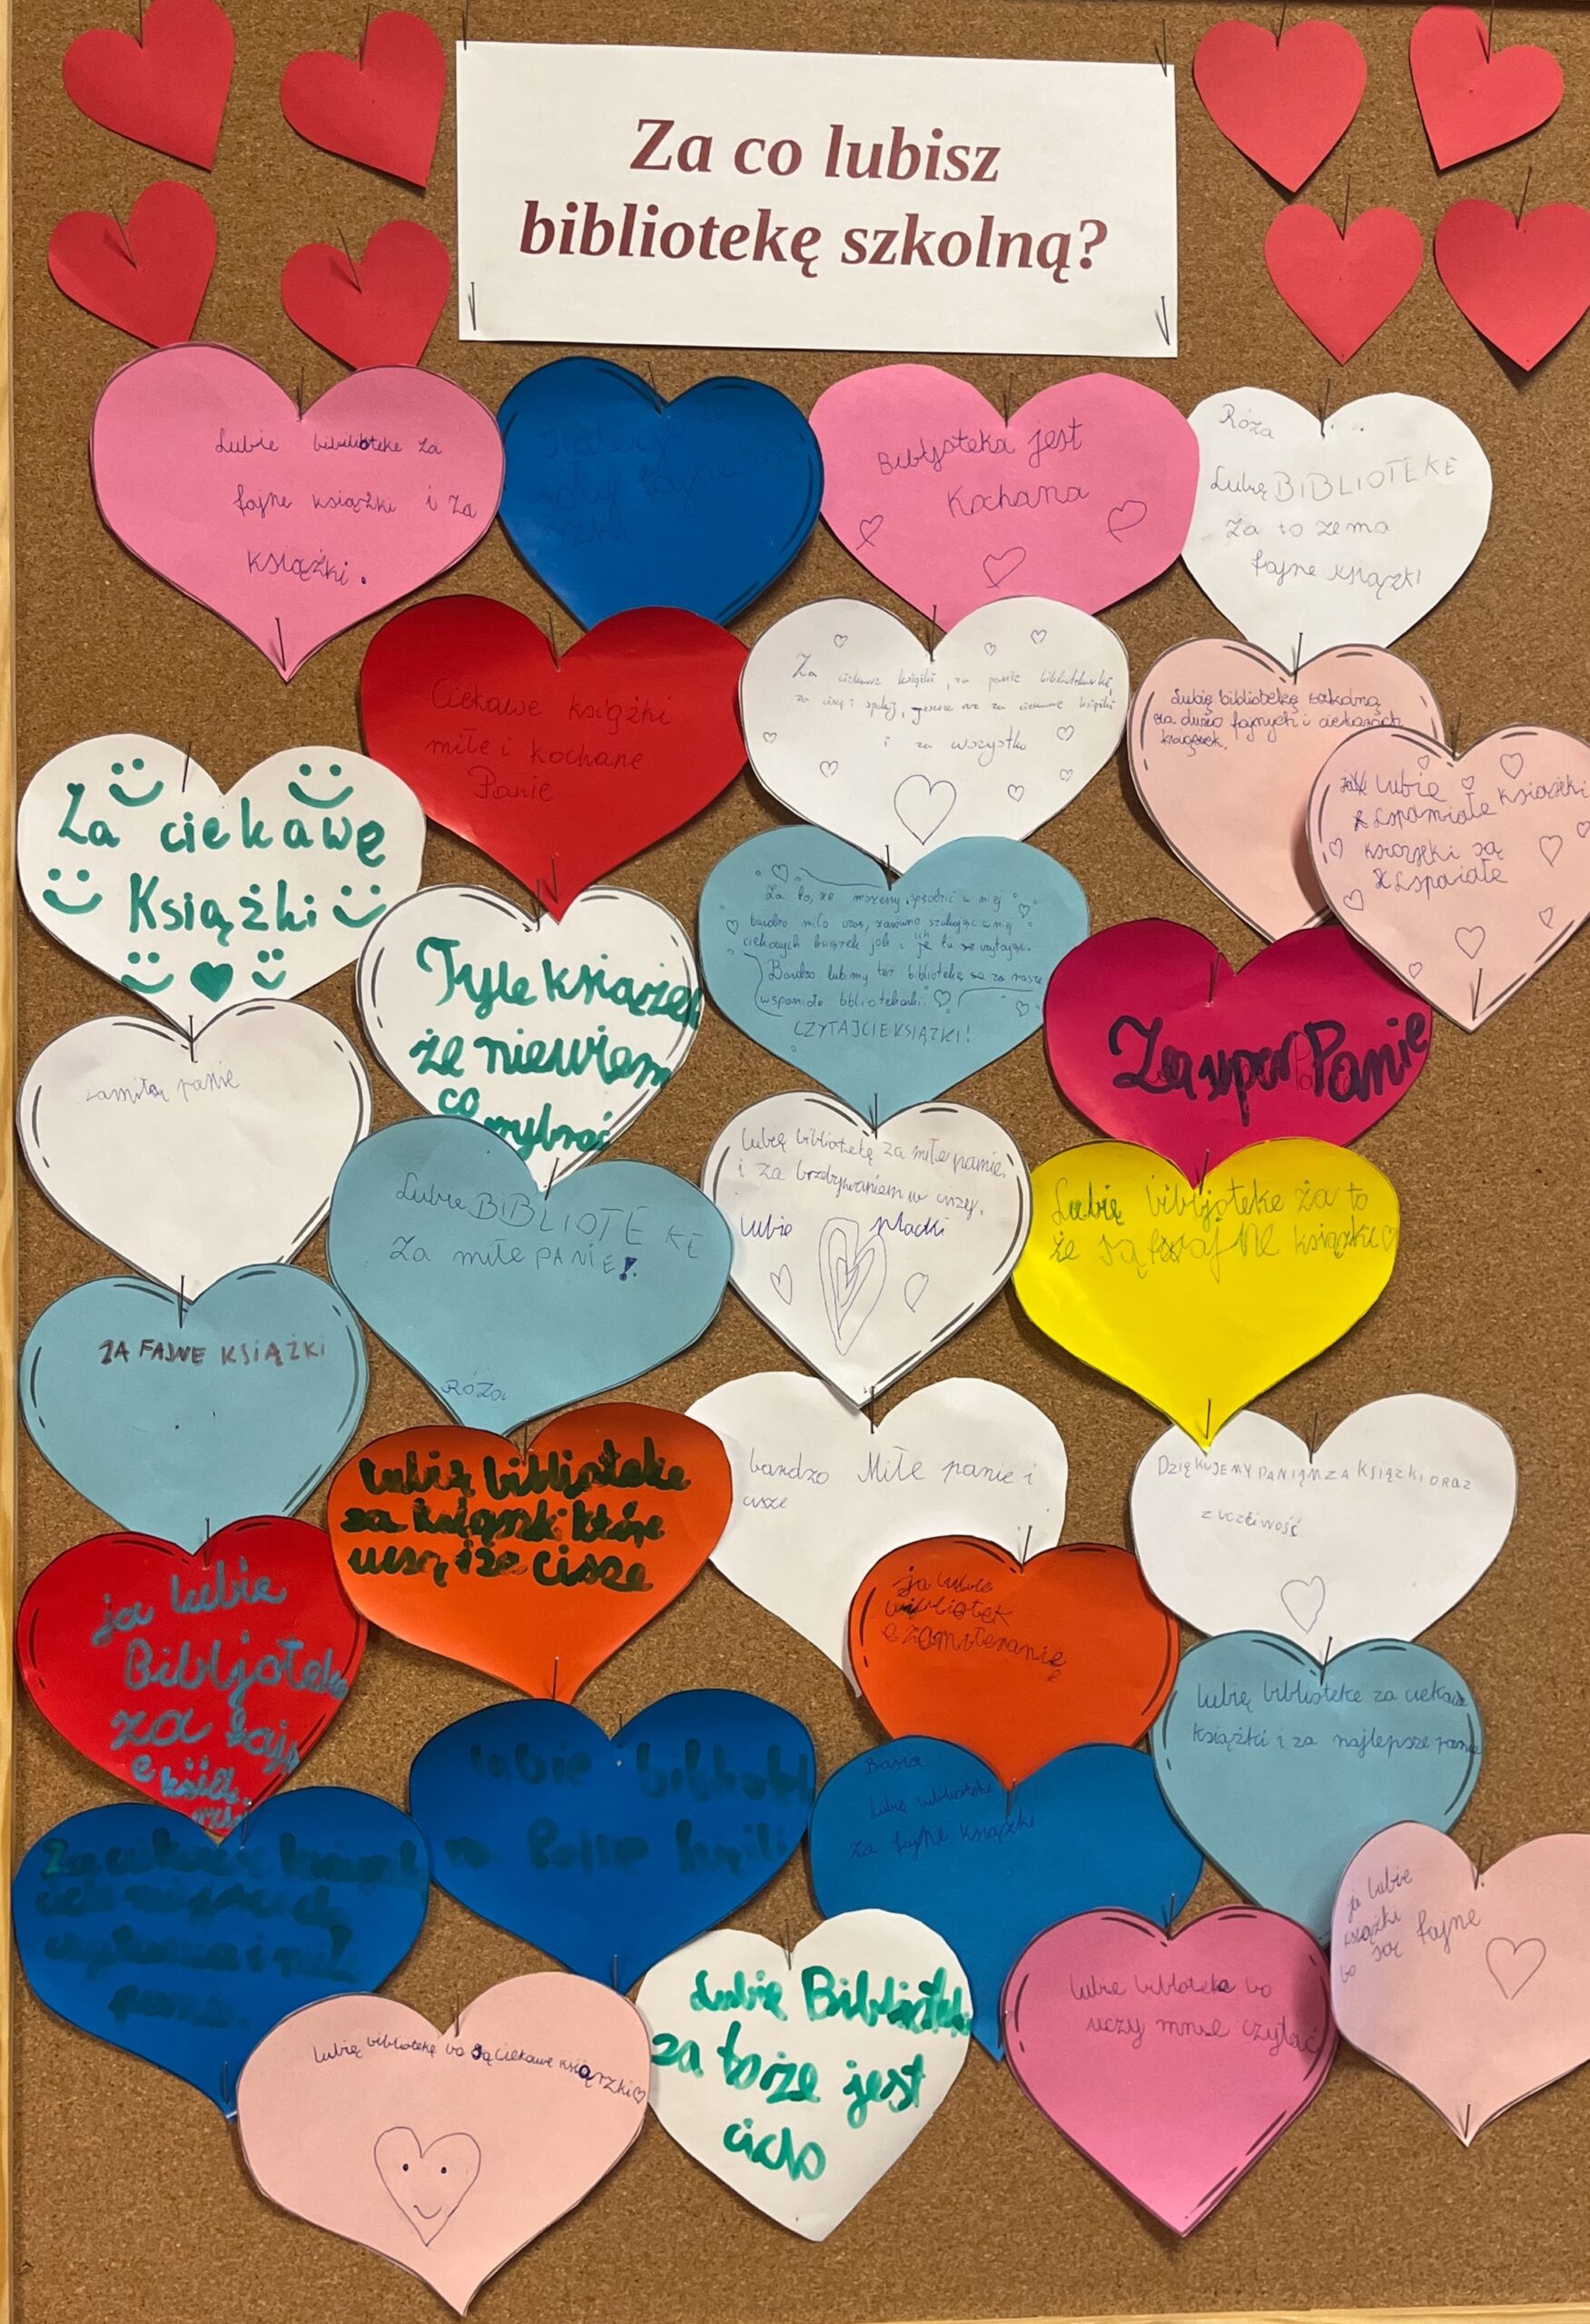 Za co lubisz
bibliotekę szkolną?
Lubie bibilibteke za
fajne książki i za
książki.
Bibljoteka jest
Kochana
Róża
Lubię BIBLIOTEKE
Za to ze ma
fajne książki
Ciekawe książki
miłe i kochane
Panie
Za ciekawe książki, za panie bibliotekarkę,
za ciszę i spokój, jeszcze raz za ciekawe książki
i za wszystko
Lubię bibliotekę szkolną
za dużo fajnych i ciekawych
książek.
lubię książki
są
Za ciekawę
Książki
Tyle książek
że niewiem
co
wybrać
Za to, że możemy spędzić w niej
bardzo miło czas, zarówno szukając w niej
ciekawych książek jak i ich tu czytając.
Bardzo lubimy też bibliotekę za nasze
wspaniałe bibliotekarki.
CZYTAJCIE KSIĄŻKI!
Za super Panie
zamiłą panie
Lubie BIBLIOTEKE
Za miłe PANIE!
RÓŻa
lubię bibliotekę za miłe panie,
i za
lubie placki
Lubię bibljoteke ża to
że są fajNe książki
ZA FAJNE KSIĄŻKI
lubię bibljoteke
za książki które
uczą i za cisze
bardzo Miłe panie i
cisze
DziękUJEMY PANIĄM ZA KSIĄŻKI ORAZ
z uczciwość
ja lubie
Bibljoteke
za fajn
e
ja lubie
bibliotek
e zamiłezanię
lubię biblioteke za ciekawe
książki i za najlepsze panie
lubie bibliotek
za
Basia
Lubię biblioteke
za fajNe książki
Za ciekawe
i
ja lubie
książki
bo są fajne
Lubię bibliotekę bo są ciekawe książki
Lubię Bibliotek
za to że jest
cicho
lubie biblioteke bo
uczy mnie czytać